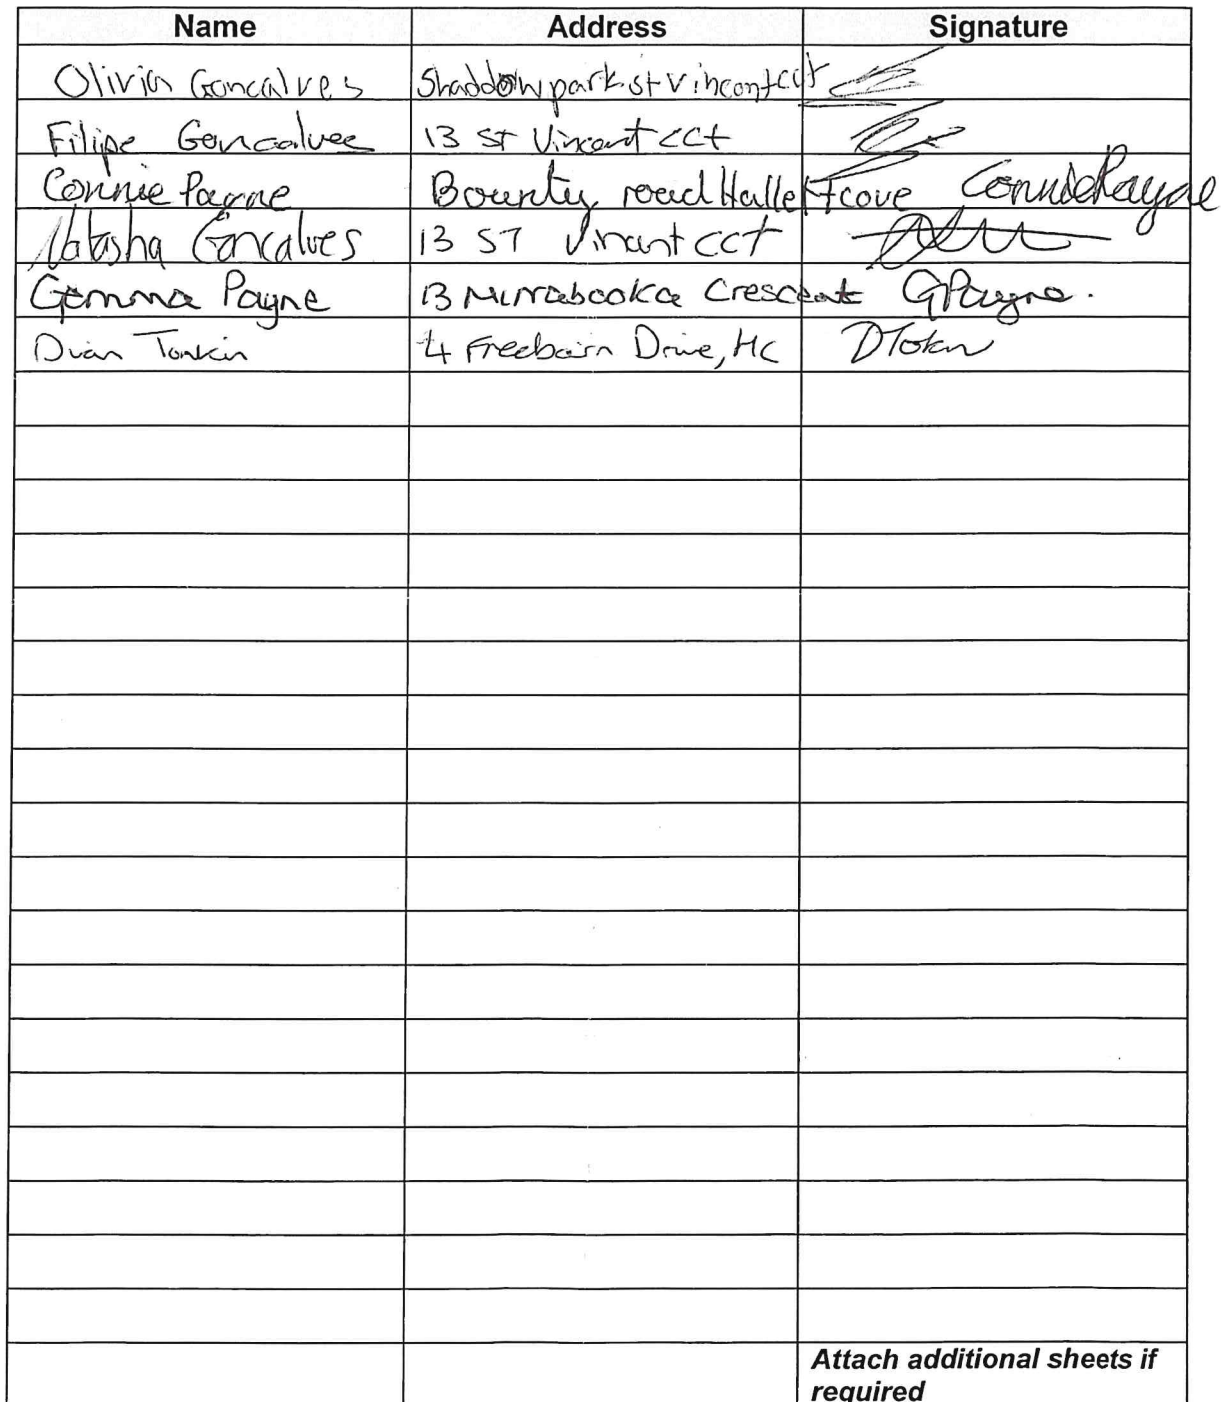 Name Address Signature
Olivia Goncalves Shaddow park st vincent cct
Filipe Goncalves 13 St Vincent cct
Connie Payne Bounty road Hallett cove Connie Payne
Natasha Goncalves 13 ST Vincent cct
Gemma Payne 13 Mirrabooka Crescent GPayne.
Dian Tonkin 4 Freebairn Drive, HC
Attach additional sheets if
required